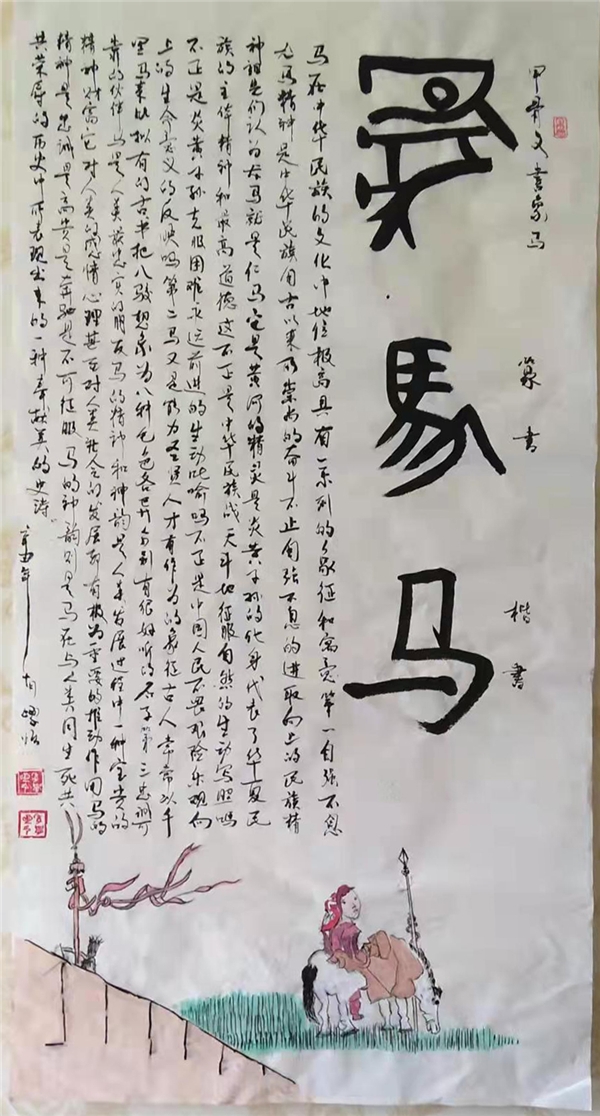 甲骨文书象马
篆书
楷书
馬
马
马在中华民族的文化中地位极高具有一系列的象征和寓意第一自强不息
马精神是中华民族自古以来所崇尚的奋斗不止自强不息的进取向上的民族精
神祖先们认为大马就是仁马它是黄河的精灵是炎黄子孙的化身代表了华夏民
族的主体精神和最高道德这不正是中华民族战天斗地征服自然的生动写照吗
不正是炎黄子孙克服困难永远前进的生动比喻吗不正是中国人民不畏艰险乐观向
上的生命意义的反映吗第二马又是能力圣贤人才有作为的象征古人常常以千
里马来比拟有的古书把八骏想象为八种毛色各异分别有很好听的名字第三忠诚可
靠的伙伴马是人类最忠实的朋友马的精神和神韵是人类发展进程中一种宝贵的
精神财富它对人类的感情心理甚至对人类社会的发展都有极为重要的推动作用马的
精神是忠诚是高贵是奔驰是不可征服马的神韵则是马在与人类同生死共
共荣辱的历史中所表现出来的一种奉献美的史诗
辛丑年